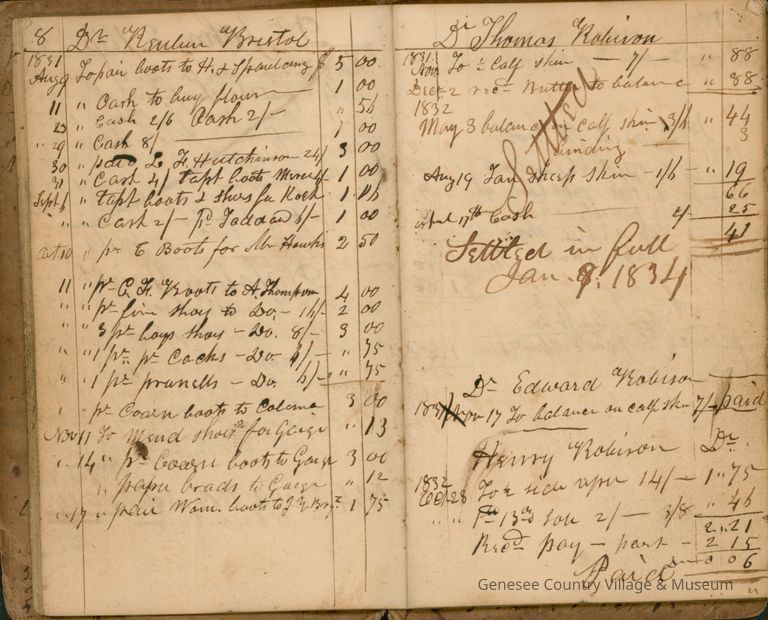 8 Dr. Reuben Bristol
1831
Aug 9 To pair boots to H. Spaulding $ 3 00
11 " Cash to buy flour 1 00
23 " Cash 2/6 Cash 2/- " 56
" 29 " Cash 8/ 1 00
30 " paid L. F. Hutchinson 24/ 3 00
31 " Cash 4/ tapt boots 1 00
Sept 1 " tapt boots & shoes 1
" Cash 2/- pr 6/- 1 00
Oct 10 " pr C Boots for Mr Hawks 2 50
11 " pr C. H. Boots to A. Thompson 4 00
" " pr fine shoes to Do. - 16/- 2 00
" " 3 pr boys shoes - Do. 8/- 3 00
" " 1 pr pr Cacks - Do 6/- " 75
" " 1 pr prunells - Do. 6/- " 75
" pr Coarse boots to 3 00
Nov 11 To Mend shoes for George " 13
" 14 " pr Coarse boots to George 3 00
" paper brads to George " 12
" 17 " pair Wom. boots to 1 75
Dr Thomas Robison
1831
Nov To 1/2 Calf skin - 7/- " 88
Dec 2 recd Butter to balance " 88
1832
May 3 balance on calf skin 3/6 " 44
binding 3
Aug 19 Tan sheep skin - 1/6 - " 19
66
April 17th Cash 2/ 25
41
Settled
Settled in full
Jan. 8. 1834
Dr Edward Robison
1831 Nov 17 To balance on calf skin 7/- paid
Henry Robison Dr.
1832
Oct 28 To 1 side upper 14/- 1 " 75
" " sole 2/- 3/8 " 46
2.21
Recd pay - part - 2 15
0 06
Paid
Genesee Country Village & Museum